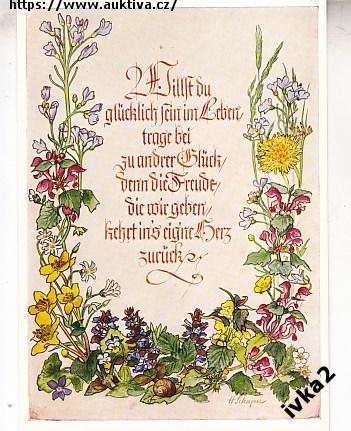 https://www.auktiva.cz/
Willst du
glücklich sein im Leben
trage bei
zu andrer Glück/
denn die Freude
die wir geben/
kehrt in's eigne Herz
zurück
H. Schaper
ivka2